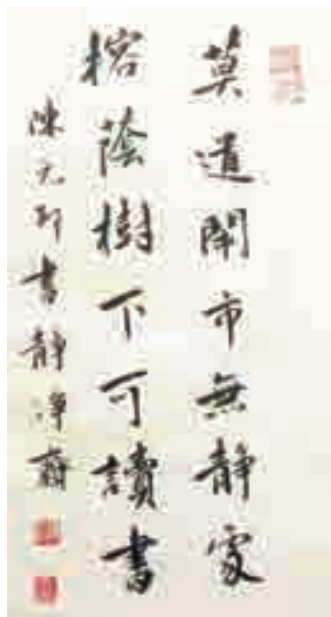 莫道閙市無静處
榕蔭樹下可讀書
陳元书静淨齋